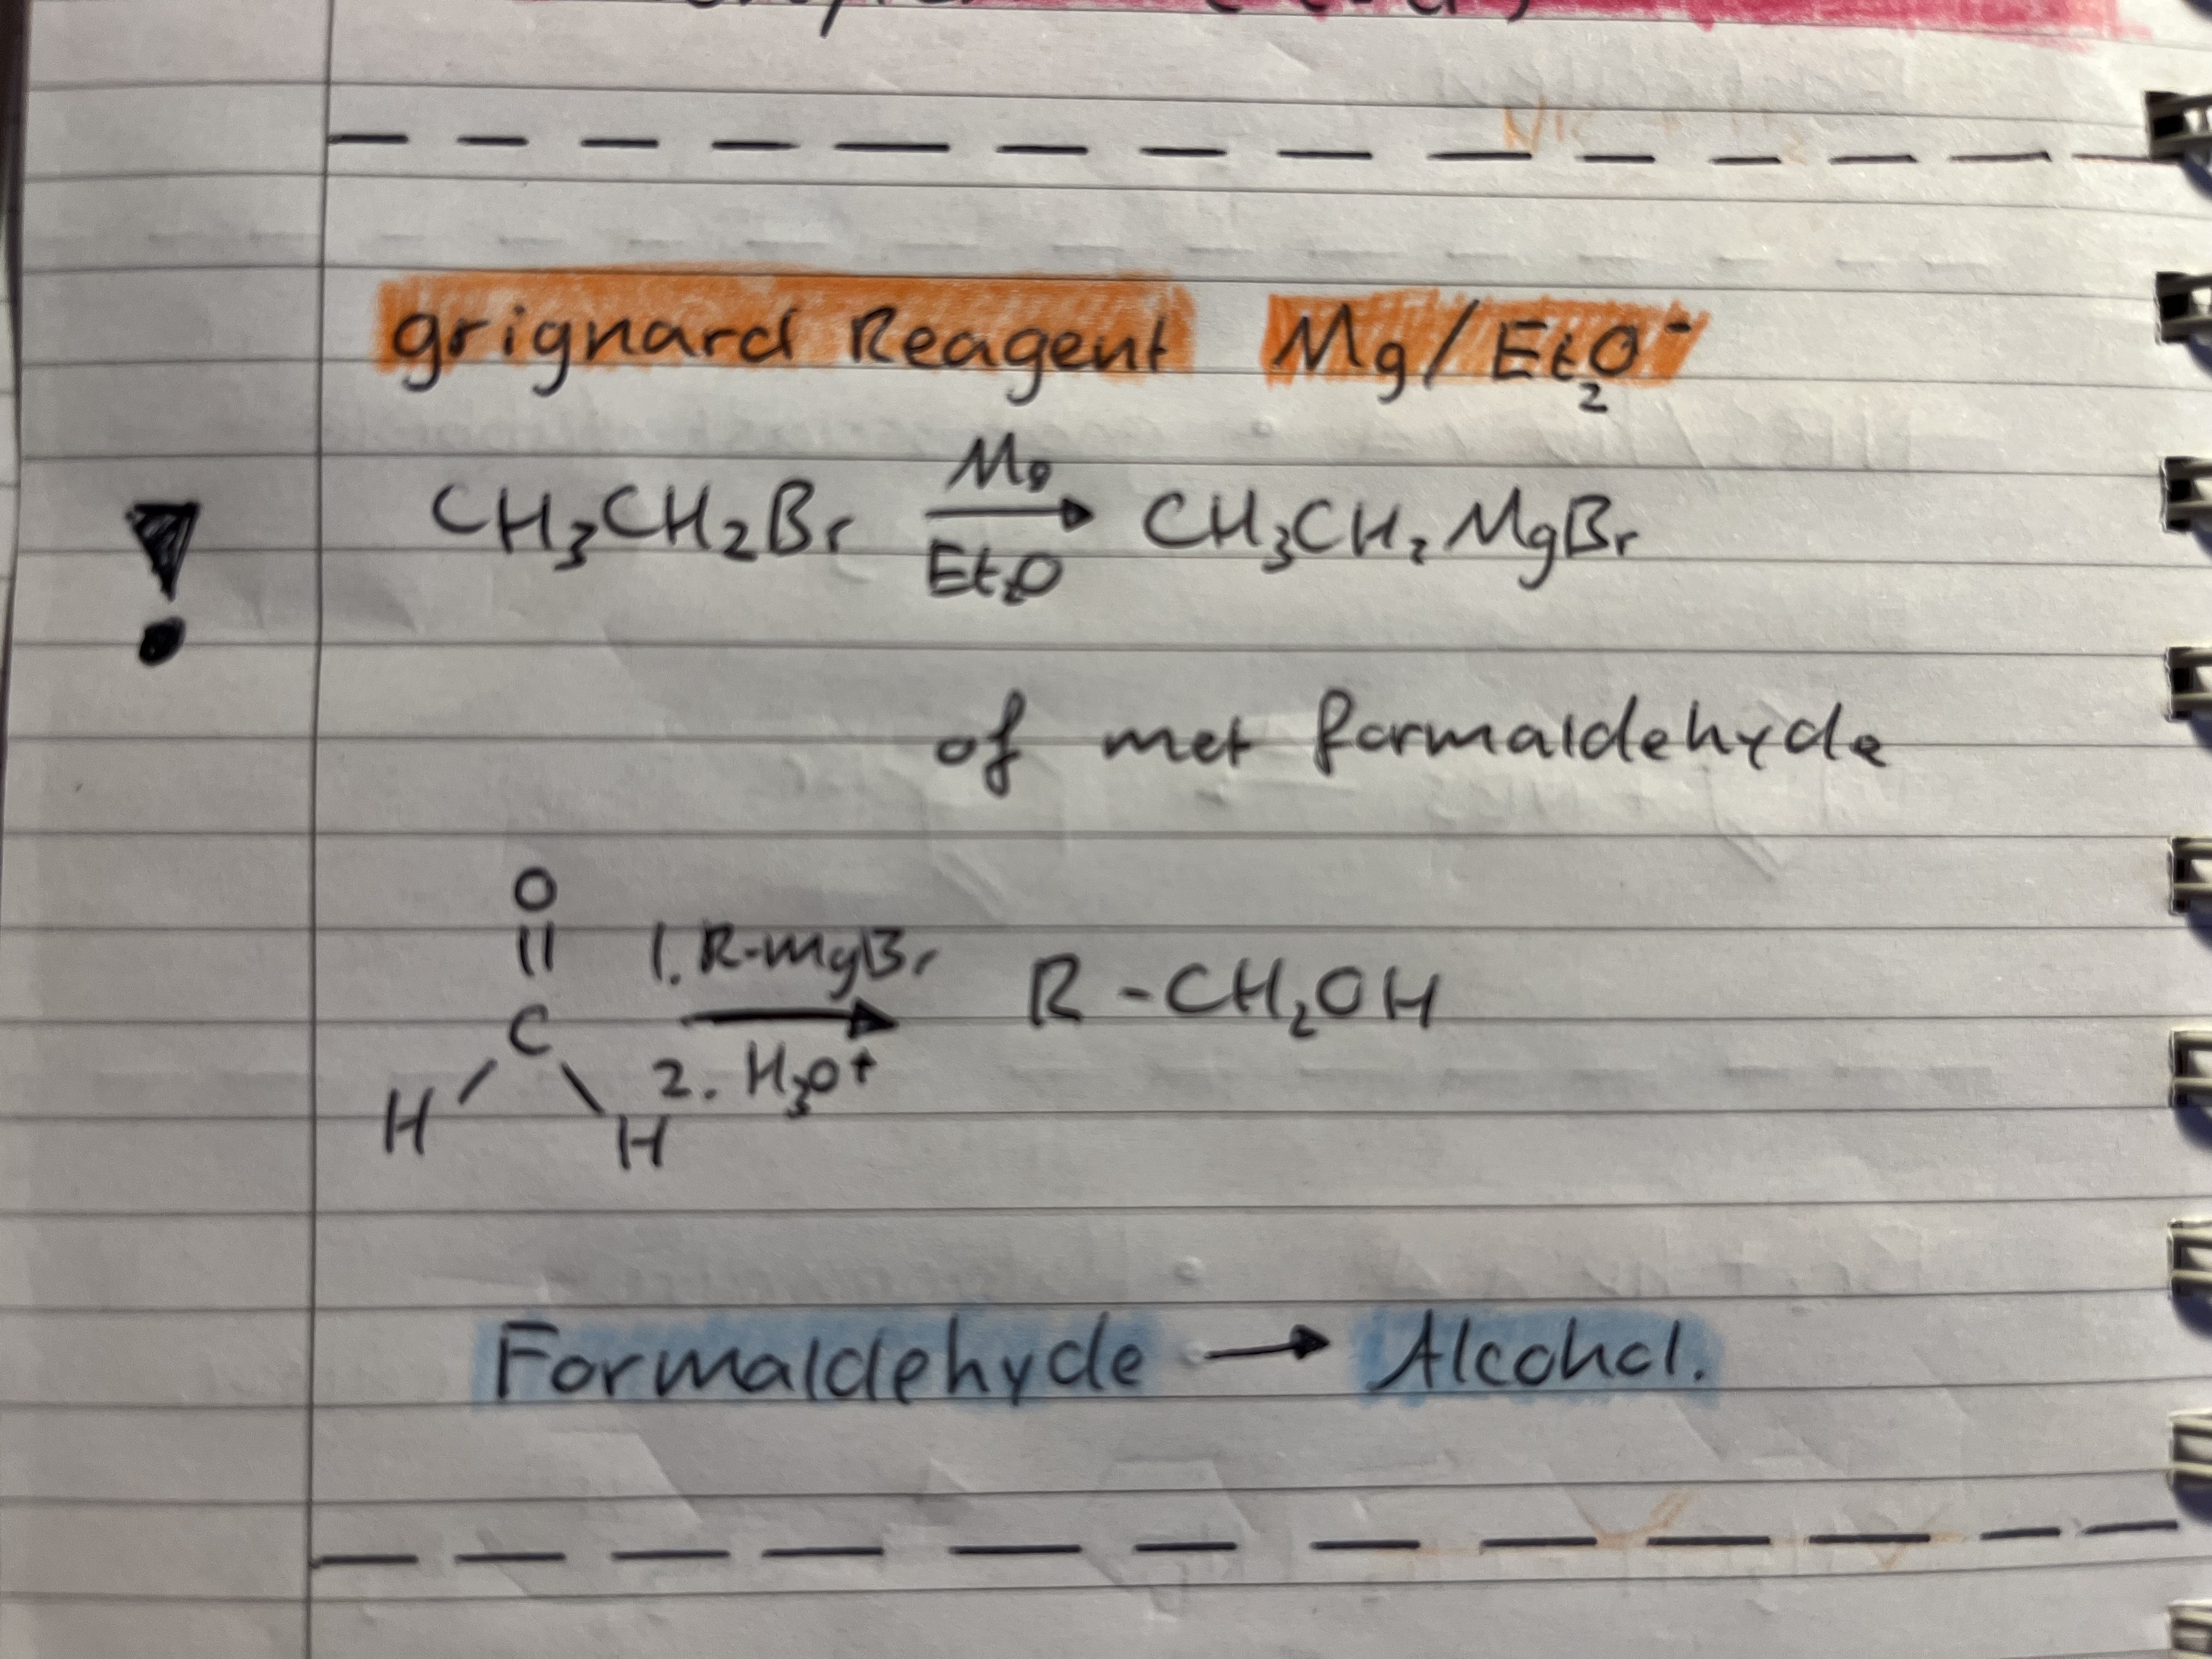 grignard Reagent Mg/Et₂O⁻
CH₃CH₂Br Mg → Et₂O CH₃CH₂MgBr
of met formaldehyde
O
||
C
H H
1. R-MgBr → 2. H₃O⁺
R-CH₂OH
Formaldehyde → Alcohol.